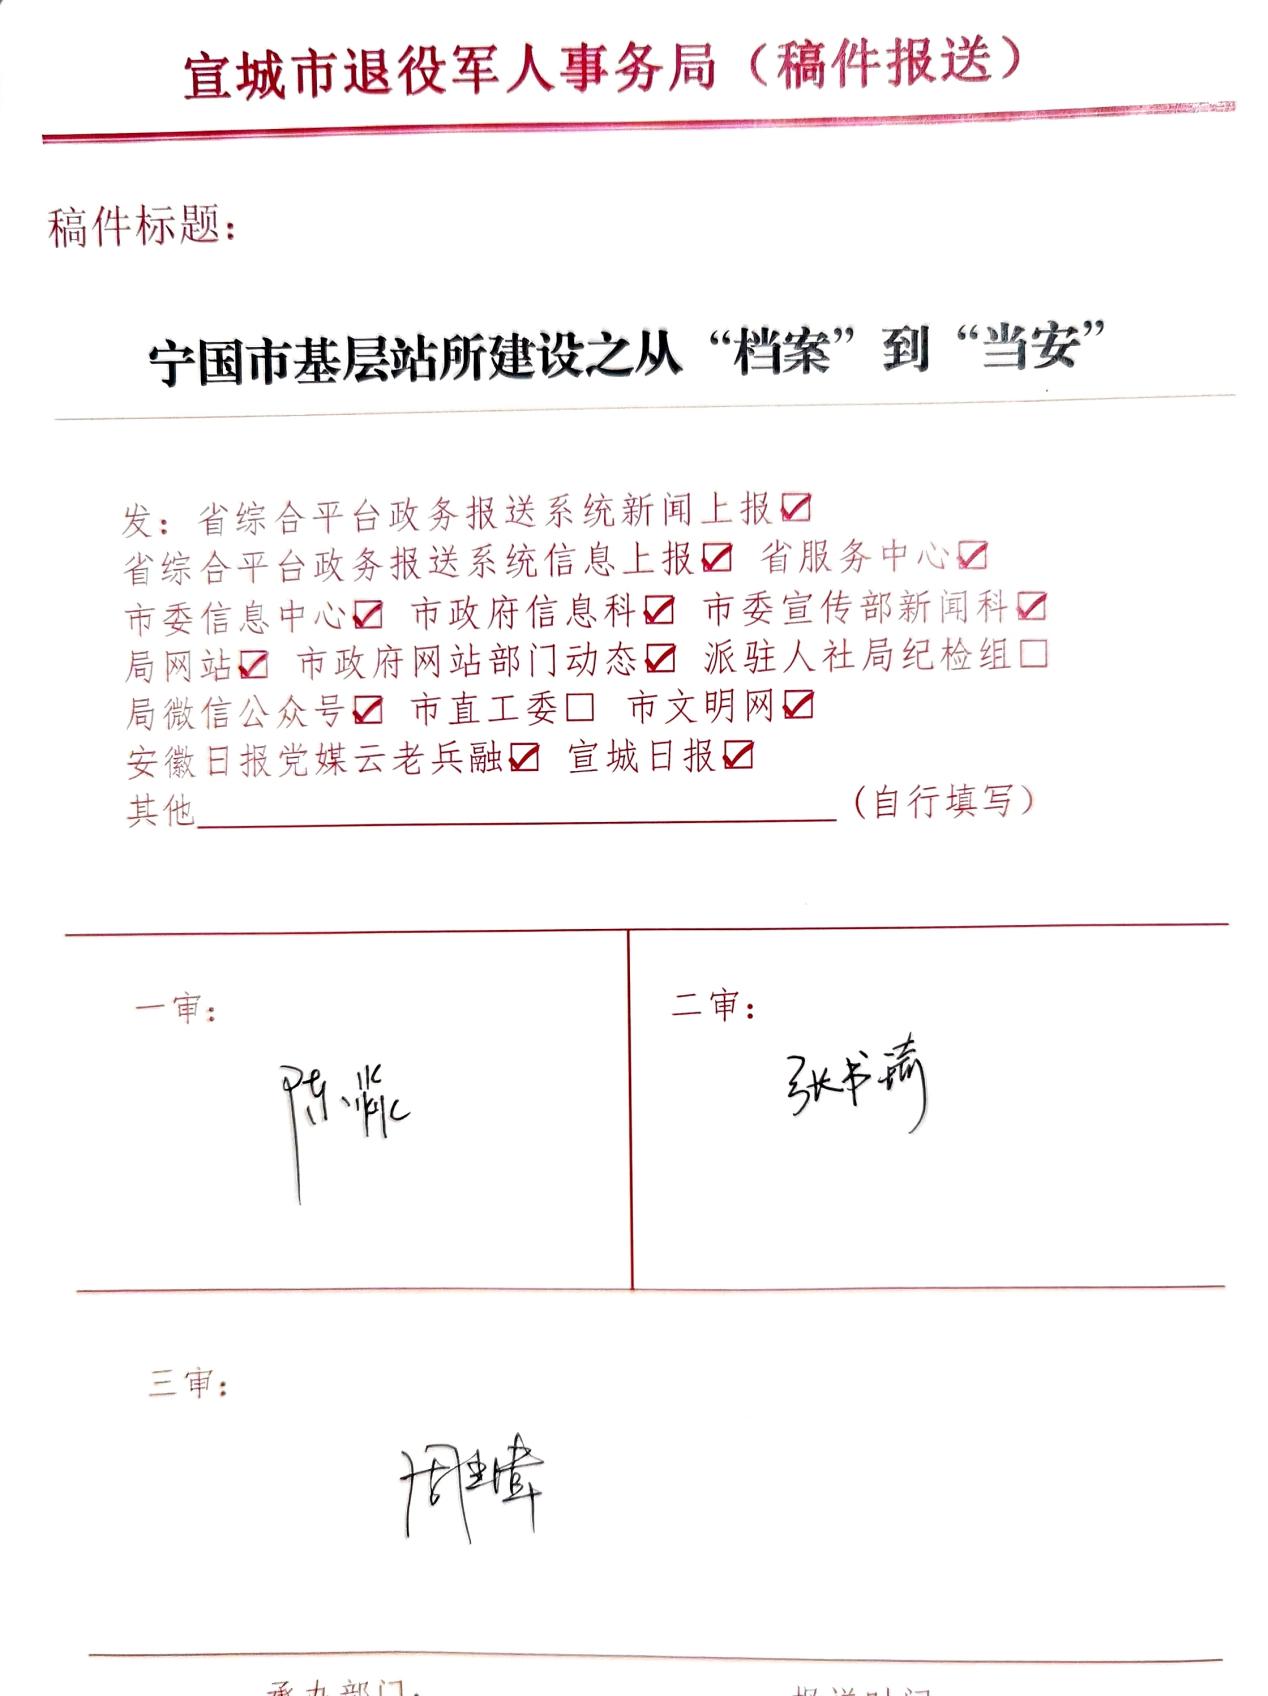 宣城市退役军人事务局（稿件报送）
稿件标题：
宁国市基层站所建设之从“档案”到“当安”
发：省综合平台政务报送系统新闻上报☑
省综合平台政务报送系统信息上报☑ 省服务中心☑
市委信息中心☑ 市政府信息科☑ 市委宣传部新闻科☑
局网站☑ 市政府网站部门动态☑ 派驻人社局纪检组□
局微信公众号☑ 市直工委□ 市文明网☑
安徽日报党媒云老兵融☑ 宣城日报☑
其他（自行填写）
一审： 二审：
陈 张书
三审：
周
承办部门： 报送时间